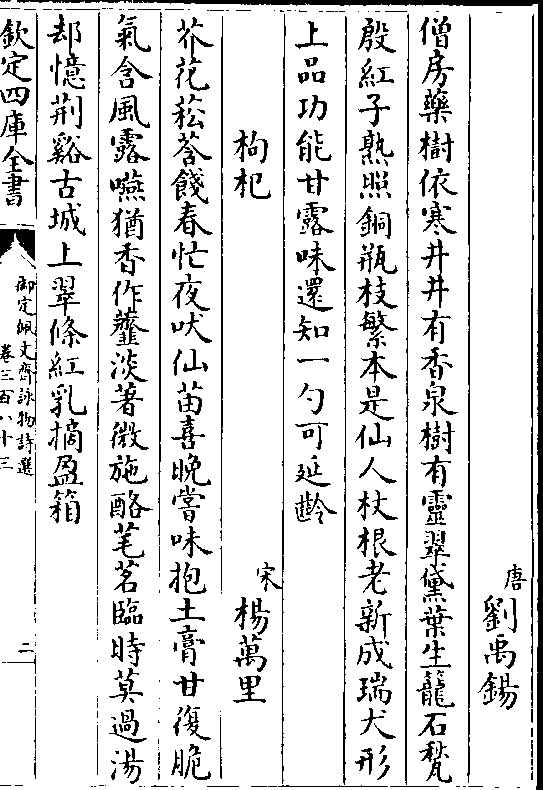 唐劉禹錫
僧房藥樹依寒井井有香泉樹有靈翠黛葉生籠石甃
殷紅子熟照銅瓶枝繁本是仙人杖根老新成瑞犬形
上品功能甘露味還知一勺可延齡
枸杞 宋楊萬里
芥花菘荅餞春忙夜吠仙苗喜晚嘗味抱土膏甘復脆
氣含風露嚥猶香作虀淡著微施酪芼茗臨時莫過湯
却憶荆谿古城上翠條紅乳摘盈箱
欽定四庫全書
御定佩文齋詠物詩選
卷三百八十三
二